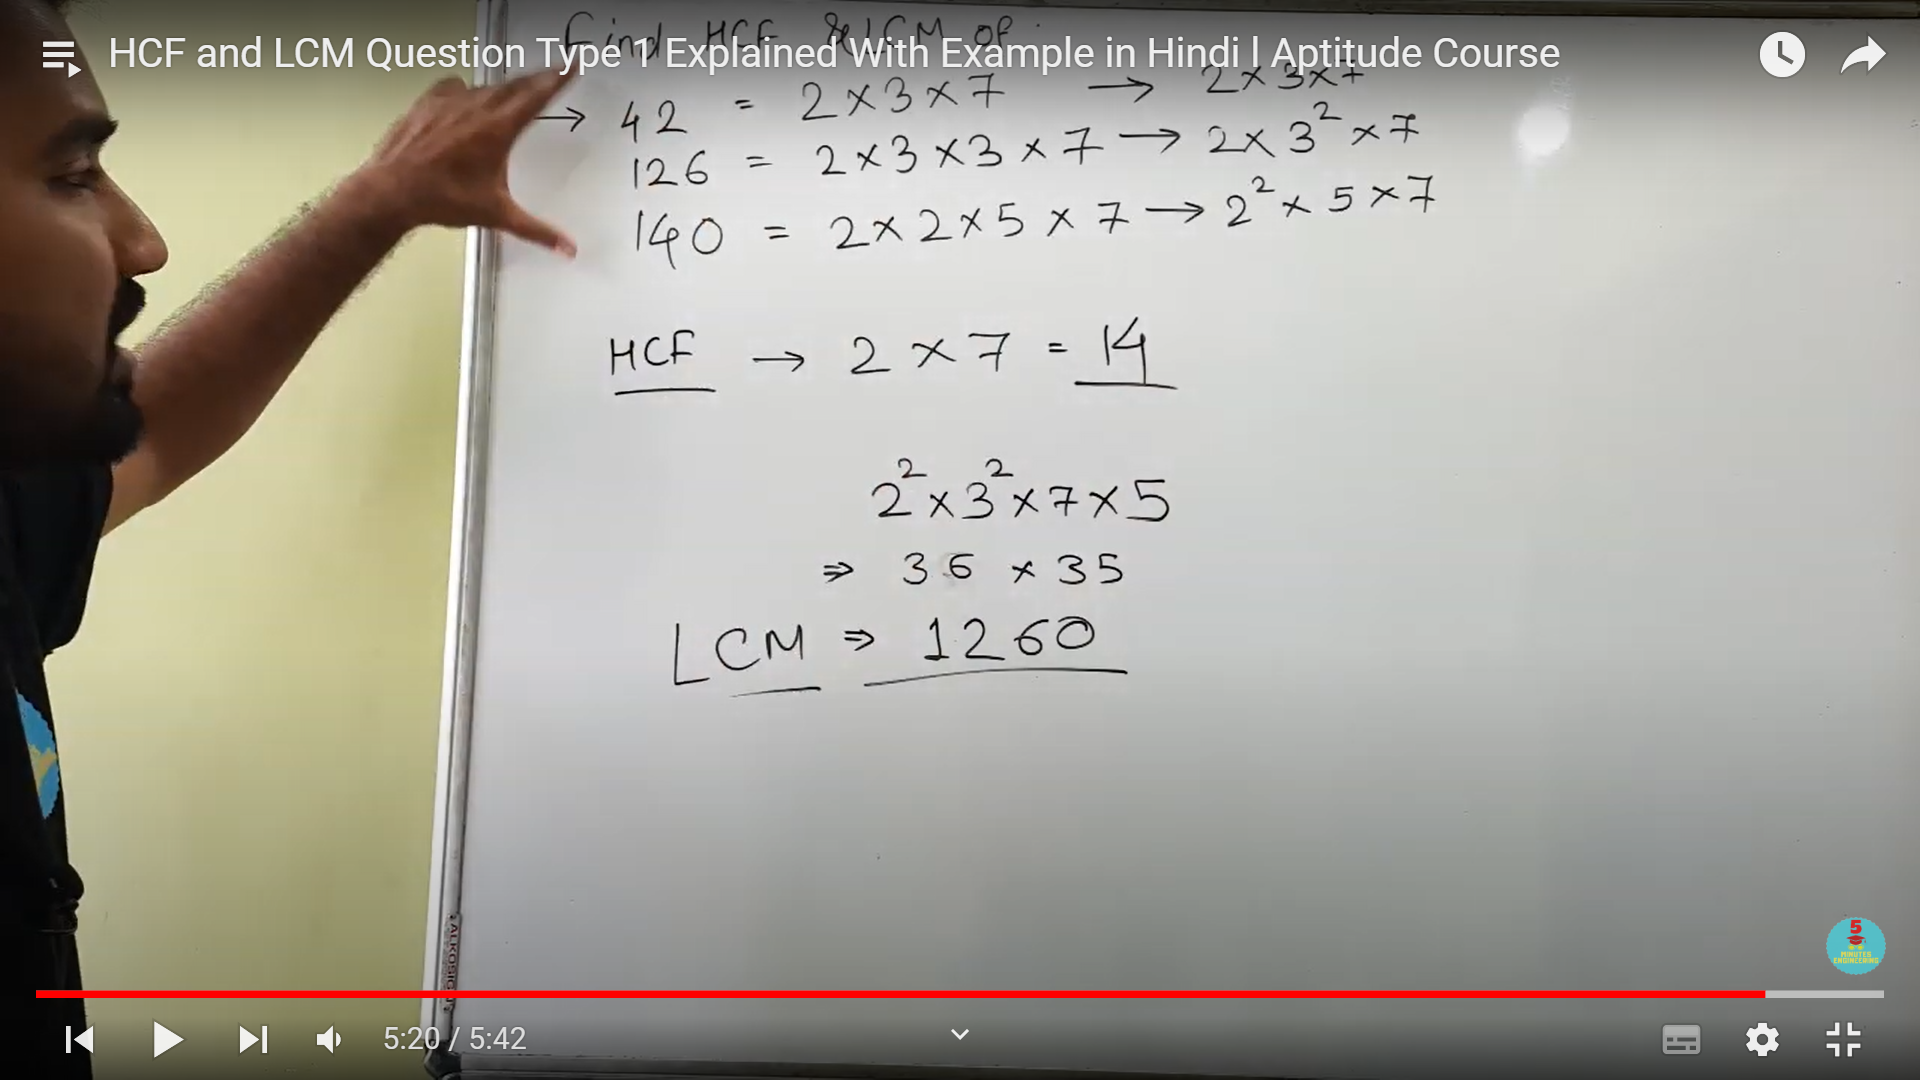 HCF and LCM Question Type 1 Explained With Example in Hindi l Aptitude Course
Find HCF & LCM of
→ 42 = 2×3×7 → 2×3×7
126 = 2×3×3×7 → 2×3²×7
140 = 2×2×5×7 → 2²×5×7
HCF → 2×7 = 14
2²×3²×7×5
⇒ 36 × 35
LCM ⇒ 1260
5
MINUTES
ENGINEERING
5:20 / 5:42